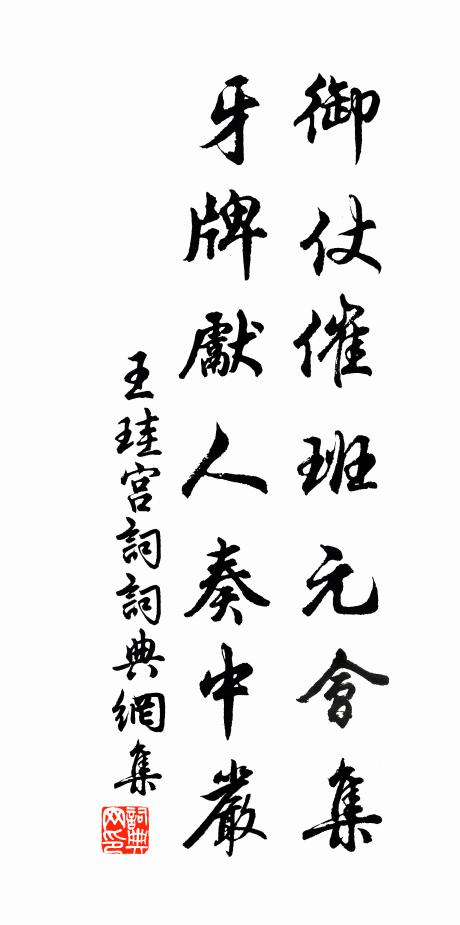 御仗催班元會集
牙牌獻人奏中嚴
王珪宮詞詞典網集
詞典网印